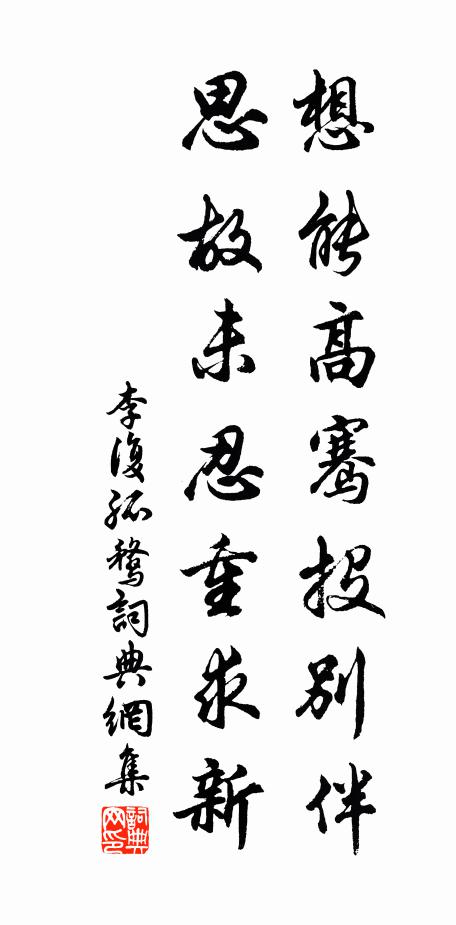 想能高騫投別伴
思故未忍重求新
李復孤鶩詞典網集
詞典
网印